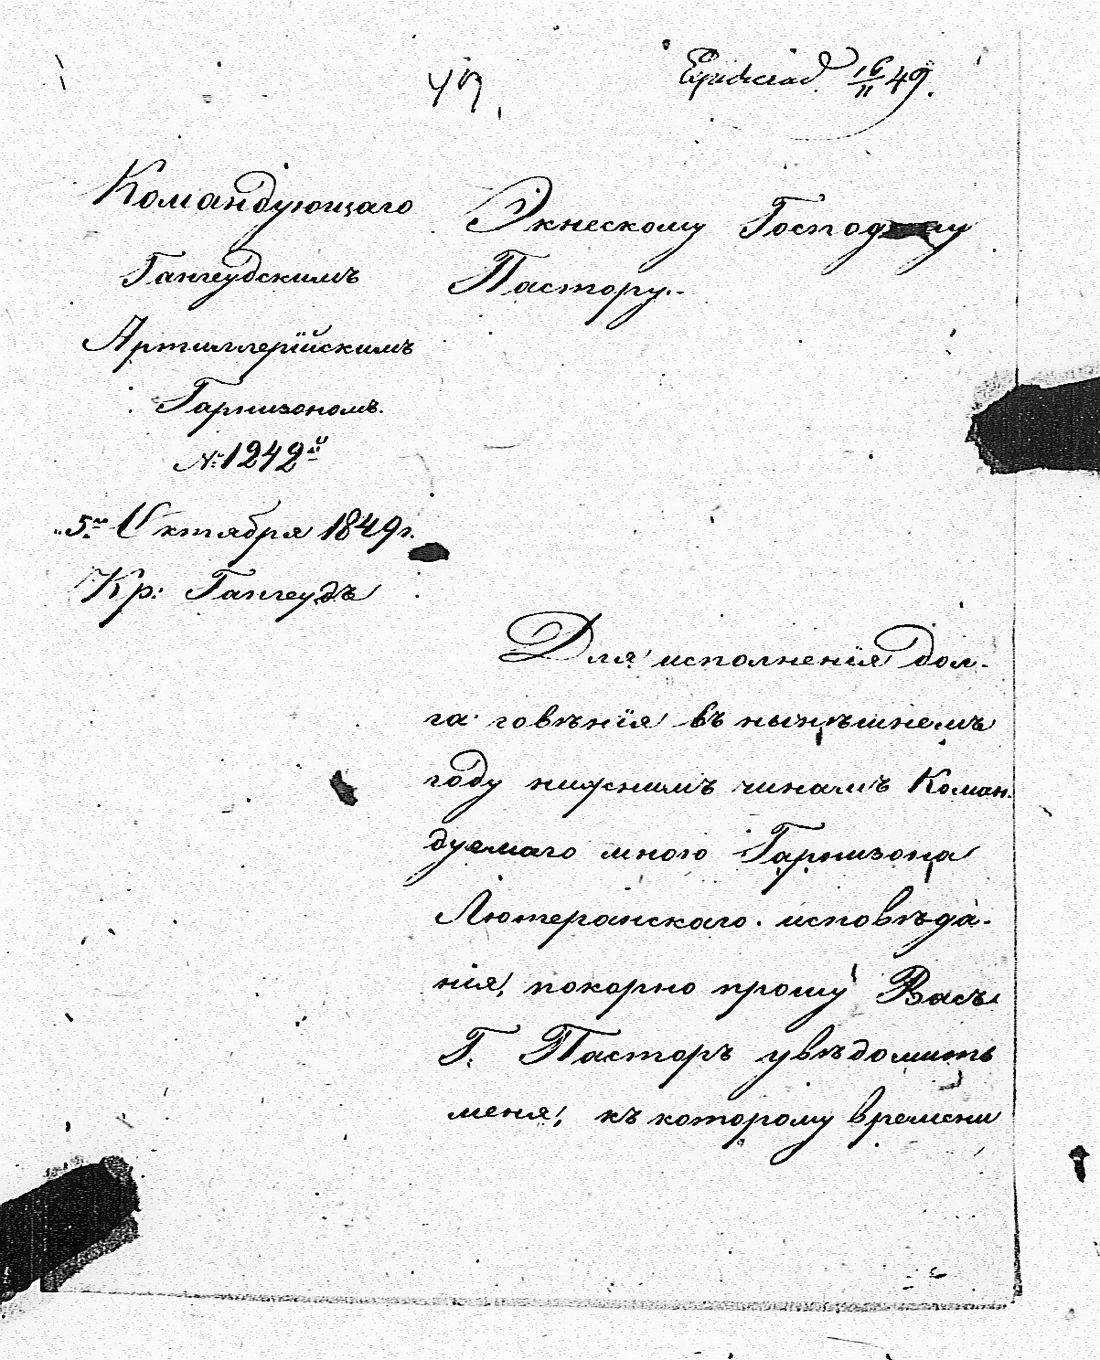 49
16/11 49.
Командующаго
Гангеудскимъ
Артиллерійскимъ
Гарнизономъ.
№ 1242й
„5го Октября 1849 г.
Кр: Гангеудъ
Экнескому Господину
Пастору.
Для исполненія дол-
га говѣнія въ нынѣшнемъ
году нижнимъ чинамъ Коман-
дуемаго мною Гарнизона
Лютеранскаго исповѣда-
нія, покорно прошу Васъ
Г. Пасторъ увѣдомить
меня, къ которому времени